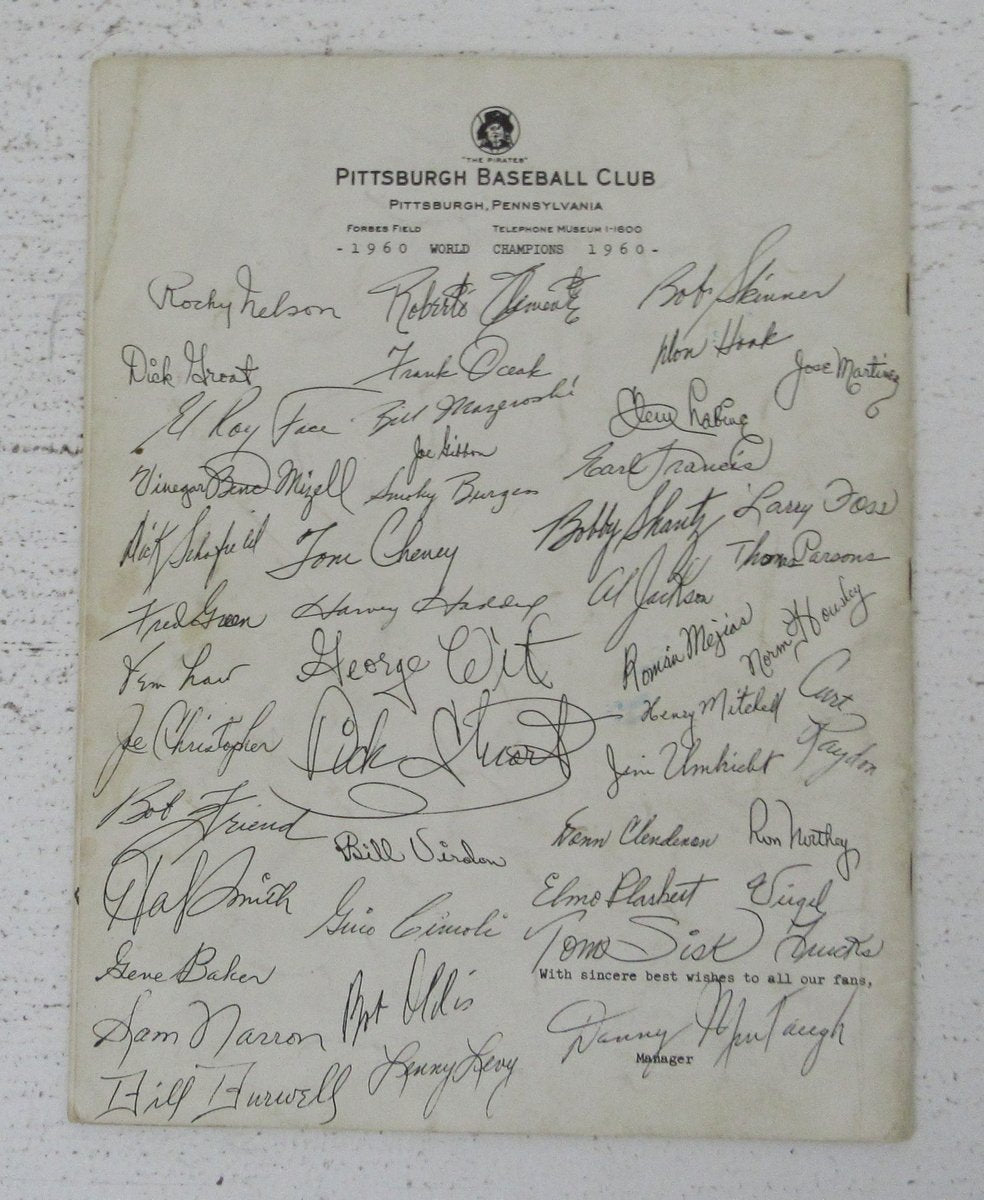 "THE PIRATES"
PITTSBURGH BASEBALL CLUB
PITTSBURGH, PENNSYLVANIA
FORBES FIELD TELEPHONE MUSEUM 1-1600
-1960 WORLD CHAMPIONS 1960-
Rocky Nelson Roberto Clemente Bob Skinner
Dick Groat Frank Oceak Don Hoak Jose Martinez
El Roy Face Bill Mazeroski Clem Labine
Joe Gibbon
Vinegar Bend Mizell Smoky Burgess Earl Francis
Dick Schofield Tom Cheney Bobby Shantz Larry Foss
Al Jackson Thomas Parsons
Fred Green Harvey Haddix
Vern Law George Witt Román Mejias Norm Housley
Joe Christopher Dick Stuart Henry Mitchell Curt
Raydon
Jim Umbricht
Bob Friend Bill Virdon Donn Clendenon Ron Northey
Hal Smith Gino Cimoli Elmo Plaskett Virgil
Tom Sisk Trucks
Gene Baker Bob Oldis
With sincere best wishes to all our fans,
Sam Narron Danny Murtaugh
Manager
Bill Burwell Lenny Levy